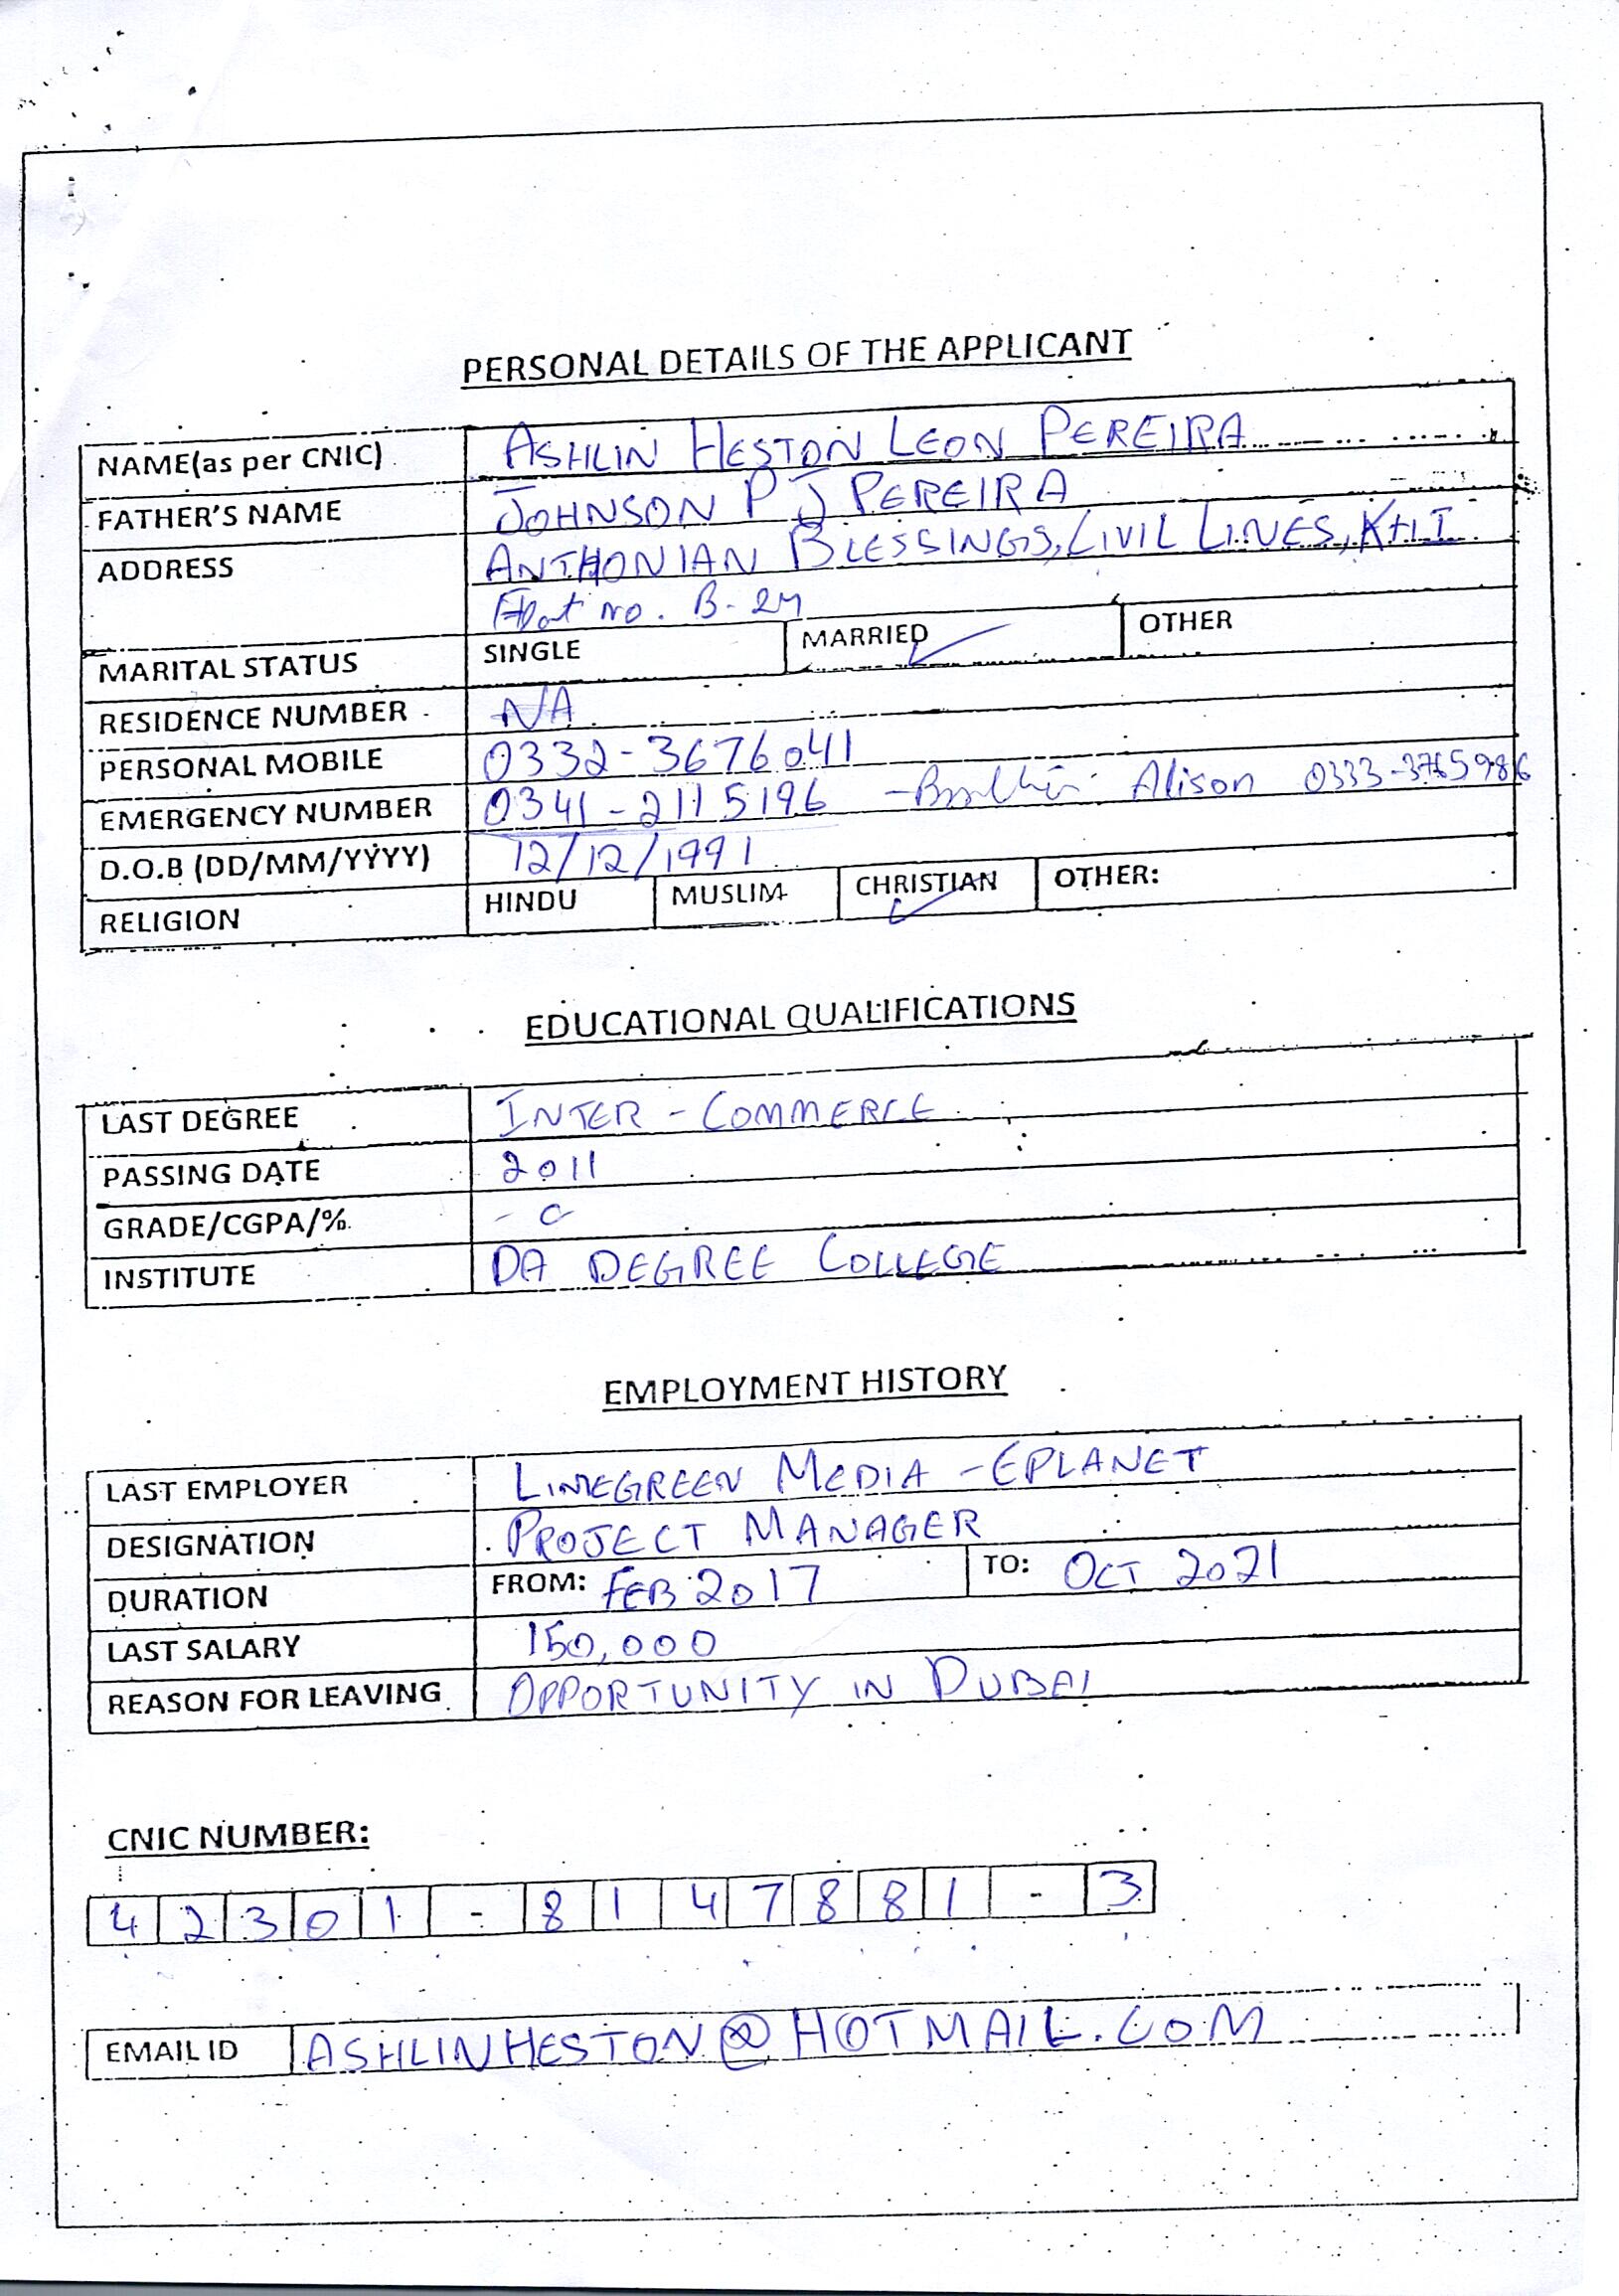 PERSONAL DETAILS OF THE APPLICANT
NAME(as per CNIC) ASHLIN HESTON LEON PEREIRA
FATHER'S NAME JOHNSON P J PEREIRA
ADDRESS ANTHONIAN BLESSINGS, CIVIL LINES, KHI
Flat no. B-24
MARITAL STATUS SINGLE MARRIED OTHER
RESIDENCE NUMBER NA
PERSONAL MOBILE 0332-3676041
EMERGENCY NUMBER 0341-2115196 - Alison 0333-3765986
D.O.B (DD/MM/YYYY) 12/12/1991
RELIGION HINDU MUSLIM CHRISTIAN OTHER:
EDUCATIONAL QUALIFICATIONS
LAST DEGREE INTER - COMMERCE
PASSING DATE 2011
GRADE/CGPA/% - C
INSTITUTE DA DEGREE COLLEGE
EMPLOYMENT HISTORY
LAST EMPLOYER LIMEGREEN MEDIA - EPLANET
DESIGNATION PROJECT MANAGER
DURATION FROM: FEB 2017 TO: OCT 2021
LAST SALARY 150,000
REASON FOR LEAVING OPPORTUNITY IN DUBAI
CNIC NUMBER:
42301-8147881-3
EMAIL ID ASHLINHESTON@HOTMAIL.COM